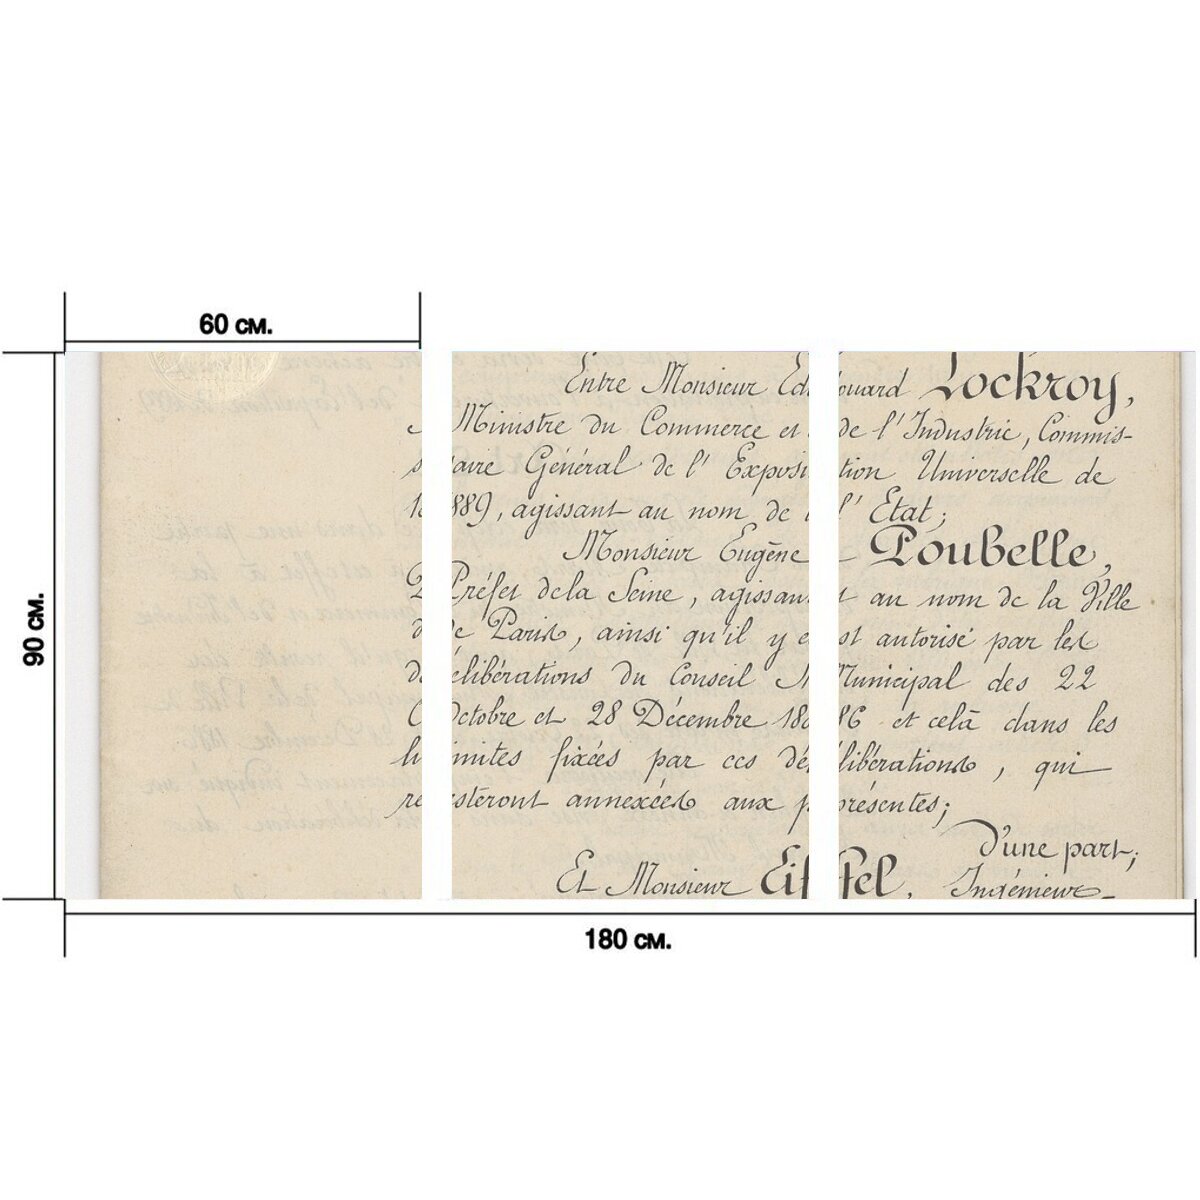 60 см.
90 см.
Entre Monsieur Edouard Lockroy,
Ministre du Commerce et de l'Industrie, Commis-
saire Général de l'Exposition Universelle de
1889, agissant au nom de l'Etat;
Monsieur Eugène Poubelle,
Préfet de la Seine, agissant au nom de la Ville
de Paris, ainsi qu'il y est autorisé par les
délibérations du Conseil Municipal des 22
Octobre et 28 Décembre 1886 et celà dans les
limites fixées par ces délibérations, qui
resteront annexées aux présentes;
D'une part;
Et Monsieur Eiffel, Ingénieur
180 см.